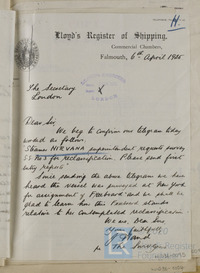 H
Lloyd's Register of Shipping,
Commercial Chambers,
Falmouth, 6th April 1905
The Secretary
London
Dear Sir,
We beg to confirm our telegram today
worded as follows:
Steamer NIRVANA superintendent requests survey
SS No 3 for reclassification Please send first
entry reports
Since sending the above telegram we have
heard the vessel was surveyed at New York
for assignment of Freeboard and we shall be
glad to learn how this Freeboard stands
relative to the contemplated reclassification
We are, Dear Sir
Yours faithfully
The Surveyors